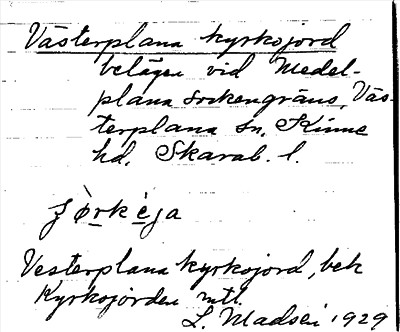 Västerplana kyrkojord
belägen vid Medel-
plana sockengräns, Väs-
terplana sn, Kinne
hd, Skarab. l.
Vesterplana kyrkojord, bek
Kyrkojorden mtl.
L. Madsén 1929